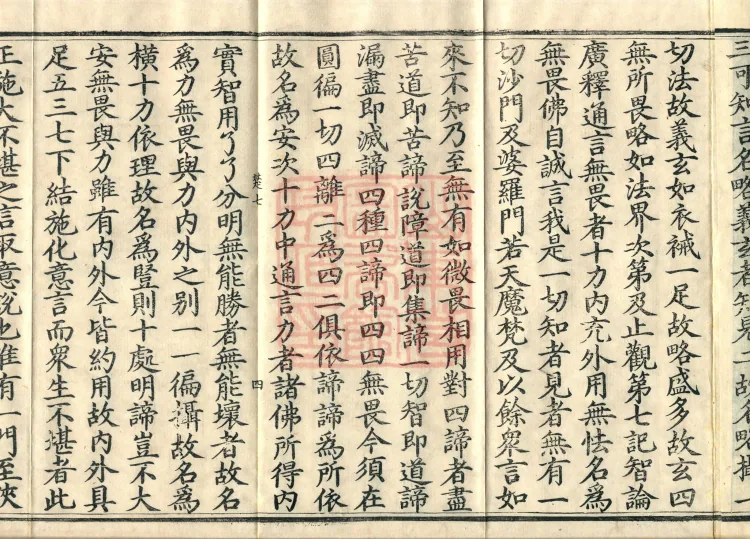 切法故義玄如衣裓一足故略盛多故玄四
無所畏略如法界次第及止觀第七記智論
廣釋通言無畏者十力内充外用無怯名爲
無畏佛自誠言我是一切知者見者無有一
切沙門及婆羅門若天魔梵及以餘眾言如
來不知乃至無有如微畏相用對四諦者盡
苦道即苦諦說障道即集諦一切智即道諦
漏盡即滅諦四種四諦即四四無畏今須在
圓徧一切四離二爲四二俱依諦諦爲所依
故名爲安次十力中通言力者諸佛所得内
楚七
四
實智用了了分明無能勝者無能壞者故名
爲力無畏與力内外之别一一徧攝故名爲
橫十力依理故名爲豎則十處明諦豈不大
安無畏與力雖有内外今皆約用故内外具
足五三七下結施化意言而眾生不堪者此